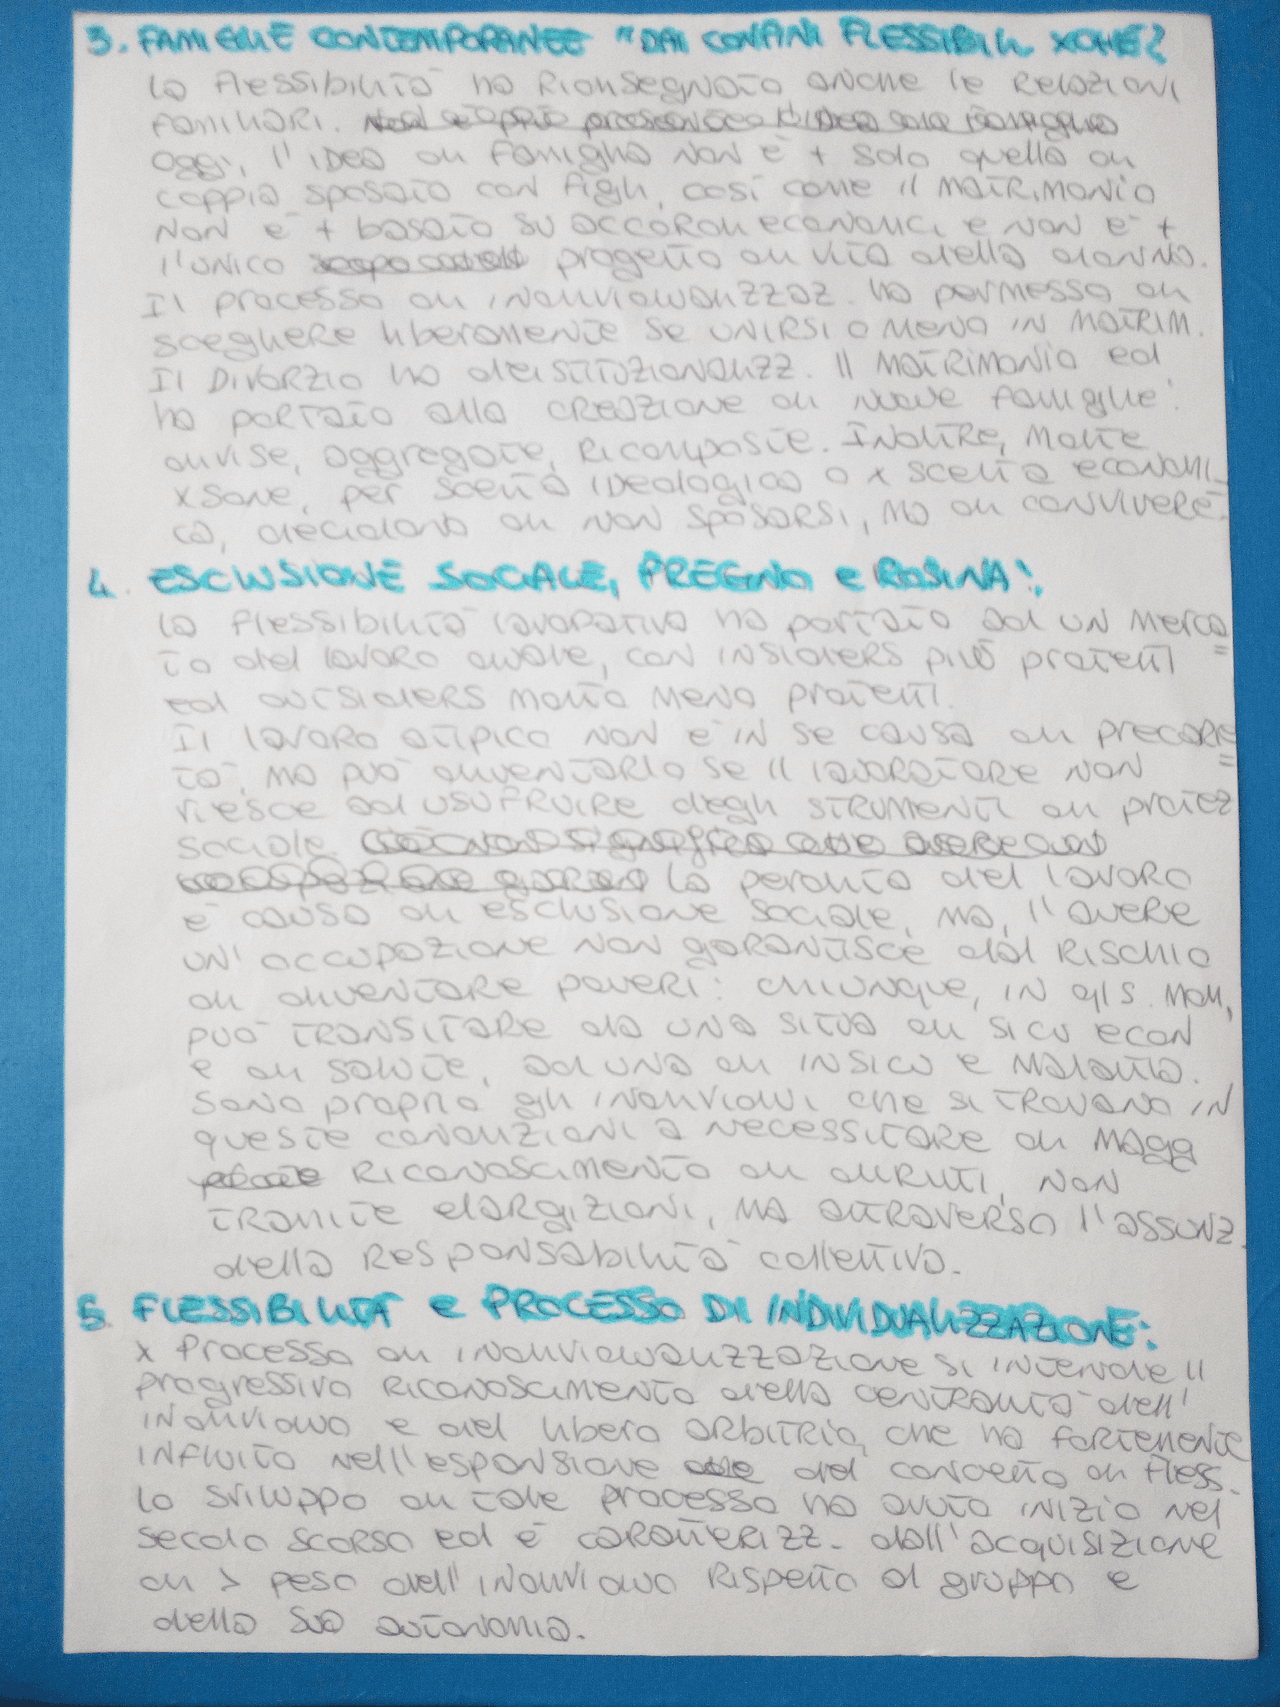 3. FAMIGLIE CONTEMPORANEE "DAI CONFINI FLESSIBILI. XCHÉ?
la flessibilità ha riconsegnato anche le relazioni
familiari.
Oggi, l'idea di famiglia non è + solo quella di
coppia sposata con figli, così come il matrimonio
non è + basato su accordi economici e non è +
l'unico progetto di vita della donna.
Il processo di individualizzaz. ha permesso di
scegliere liberamente se unirsi o meno in matrim.
Il divorzio ha deistituzionalizz. Il matrimonio ed
ha portato alla creazione di nuove famiglie:
divise, aggregate, ricomposte. Inoltre, molte
xsone, per scelta ideologica o x scelta economi_
ca, decidono di non sposarsi, ma di convivere.
4. ESCLUSIONE SOCIALE, e ROSINA:
la flessibilità lavorativa ha portato ad un merca=
to del lavoro duale, con insiders più protetti
ed outsiders molto meno protetti.
Il lavoro atipico non è in se causa di precarie=
tà, ma può diventarlo se il lavoratore non
riesce ad usufruire degli strumenti di protez
sociale. la perdita del lavoro
è causa di esclusione sociale, ma, l'avere
un'occupazione non garantisce dal rischio
di diventare poveri: chiunque, in qls. mom,
può transitare da una situa di sicu econ
e di salute, ad una di insicu e malattia.
Sono proprio gli individui che si trovano in
queste condizioni a necessitare di magg
riconoscimento di diritti, non
tramite elargizioni, ma attraverso l'assunz.
della responsabilità collettiva.
5. FLESSIBILITÀ e PROCESSO DI INDIVIDUALIZZAZIONE:
x processo di individualizzazione si intende il
progressivo riconoscimento della centralità dell'
individuo e del libero arbitrio, che ha fortemente
influito nell'espansione del concetto di fless.
lo sviluppo di tale processo ha avuto inizio nel
secolo scorso ed è caratterizz. dall'acquisizione
di > peso dell'individuo rispetto al gruppo e
della sua autonomia.